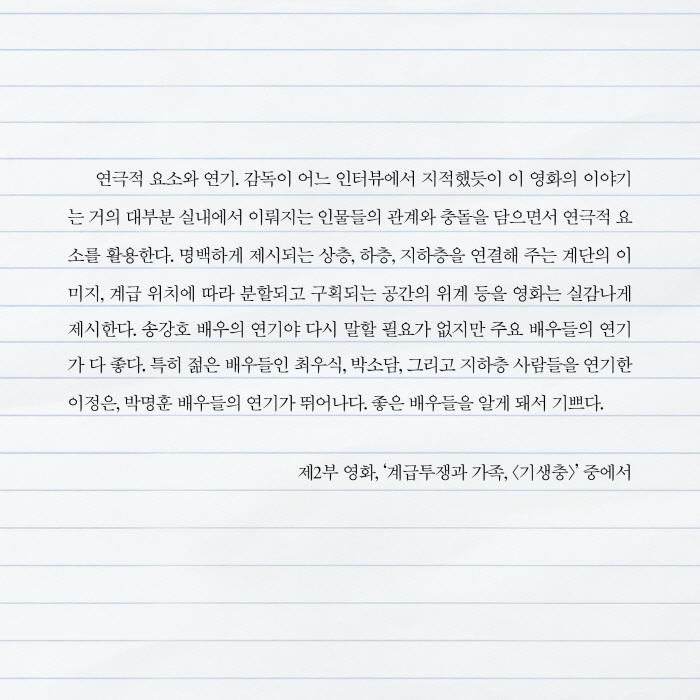 연극적 요소와 연기. 감독이 어느 인터뷰에서 지적했듯이 이 영화의 이야기
는 거의 대부분 실내에서 이뤄지는 인물들의 관계와 충돌을 담으면서 연극적 요
소를 활용한다. 명백하게 제시되는 상층, 하층, 지하층을 연결해 주는 계단의 이
미지, 계급 위치에 따라 분할되고 구획되는 공간의 위계 등을 영화는 실감나게
제시한다. 송강호 배우의 연기야 다시 말할 필요가 없지만 주요 배우들의 연기
가 다 좋다. 특히 젊은 배우들인 최우식, 박소담, 그리고 지하층 사람들을 연기한
이정은, 박명훈 배우들의 연기가 뛰어나다. 좋은 배우들을 알게 돼서 기쁘다.
제2부 영화, ‘계급투쟁과 가족, 〈기생충〉’ 중에서